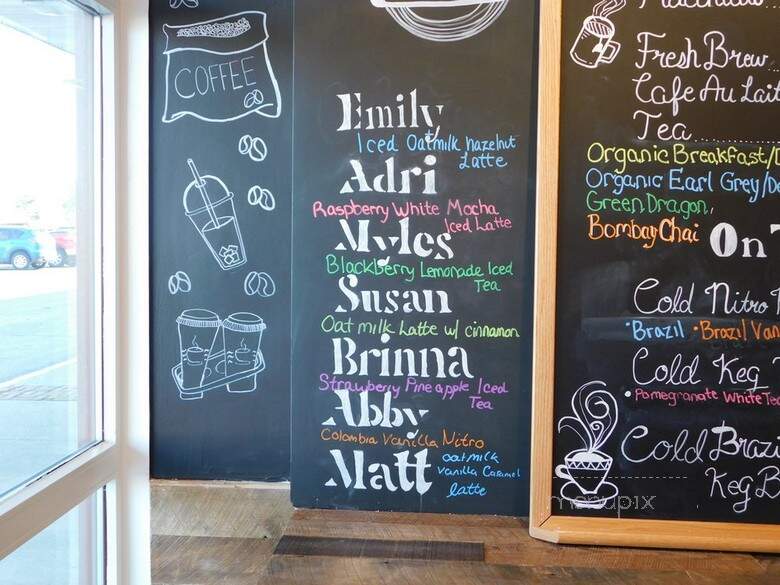 COFFEE
Emily
Iced Oatmilk hazelnut
Latte
Adri
Raspberry White Mocha
Iced Latte
Myles
Blackberry Lemonade Iced
Tea
Susan
Oat milk Latte w/ cinnamon
Brinna
Strawberry Pineapple Iced
Tea
Abby
Colombia Vanilla Nitro
Matt
oatmilk
vanilla Caramel
latte
Fresh Brew
Cafe Au Lait
Tea
Organic Breakfast/
Organic Earl Grey/De
Green Dragon,
Bombay Chai
On
Cold Nitro
•Brazil •Brazil Van
Cold Keg
•Pomegranate White Tea
Cold Brazi
Keg B
menupix